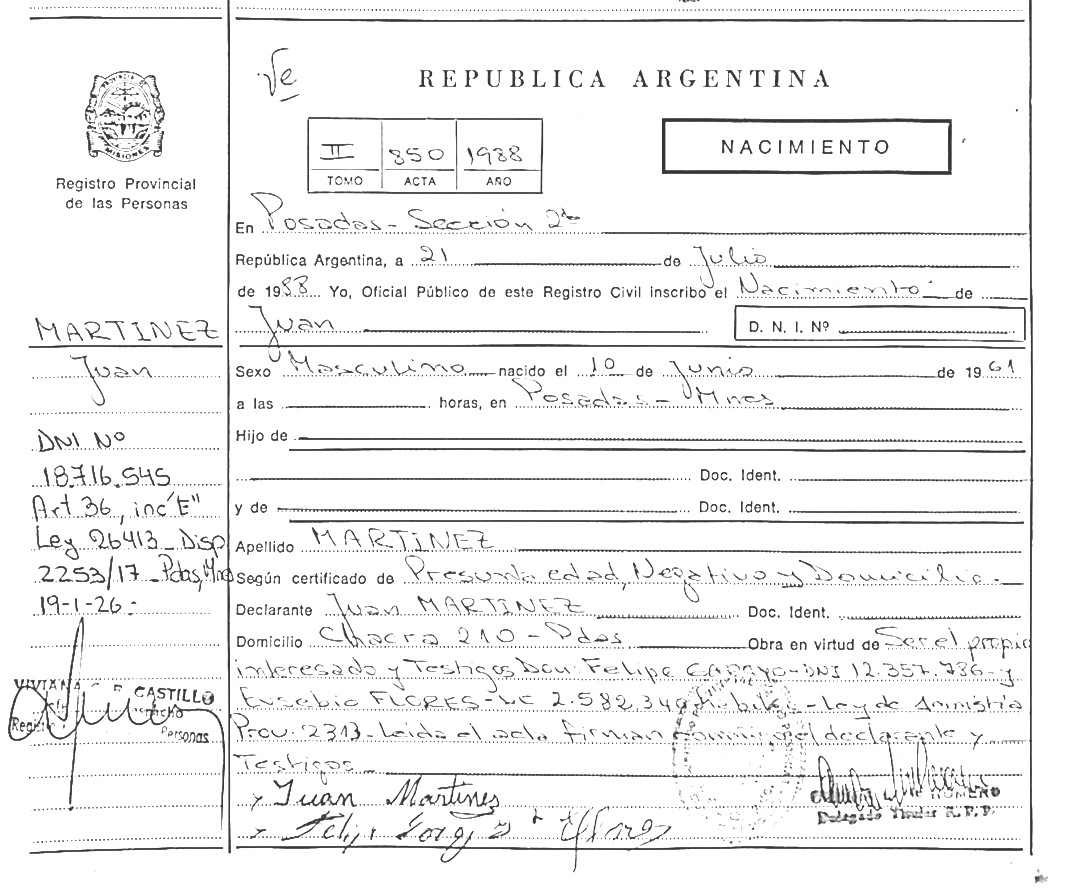 PROVINCIA DE
MISIONES
Registro Provincial
de las Personas
REPUBLICA ARGENTINA
NACIMIENTO
II 850 1988
TOMO ACTA AÑO
En Posadas - Sección 2da
República Argentina, a 21 de Julio
de 1988 Yo, Oficial Público de este Registro Civil inscribo el Nacimiento de
Juan D. N. I. Nº
Sexo Masculino nacido el 10 de Junio de 1961
a las horas, en Posadas - Mnes
Hijo de
Doc. Ident.
y de Doc. Ident.
Apellido MARTINEZ
Según certificado de Presunta edad, Negativo y Domicilio.
Declarante Juan MARTINEZ Doc. Ident.
Domicilio Chacra 210 - Pdas Obra en virtud de Ser el propio
interesado y Testigos Don: Felipe DNI 12.357.736 - y
Eusebio FLORES - LC 2.582.340 - Ley de Amnistía
Prov. 2313 - Leida el acta firman el declarante y
Testigos
Juan Martines
Flores
ROMERO
Delegado Titular R.P.P.
MARTINEZ
Juan
DNI Nº
18.716.545
Art 36, inc "E"
Ley 26413 - Disp
2253/17 - Pdas, Mnes
19-1-26
VIVIANA CASTILLO
Personas